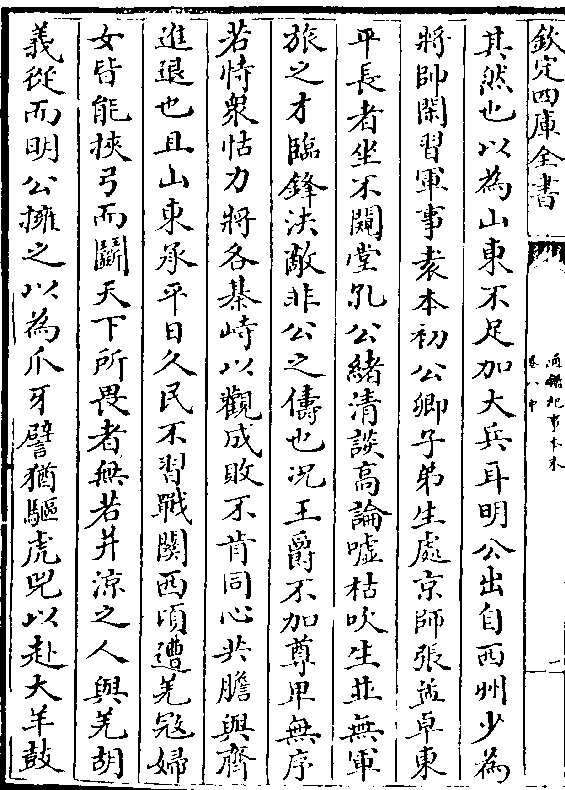 欽定四庫全書
通鑑紀事本末
卷八中
其然也以為山東不足加大兵耳明公出自西州少為
將帥閑習軍事袁本初公卿子弟生處京師張孟卓東
平長者坐不闚堂孔公緒清談高論噓枯吹生並無軍
旅之才臨鋒決敵非公之儔也况王爵不加尊卑無序
若恃衆怙力將各棊峙以觀成敗不肯同心共膽與齊
進退也且山東承平日久民不習戰關西頃遭羌寇婦
女皆能挾弓而鬭天下所畏者無若并涼之人與羌胡
義從而明公擁之以為爪牙譬猶驅虎兕以赴犬羊鼓